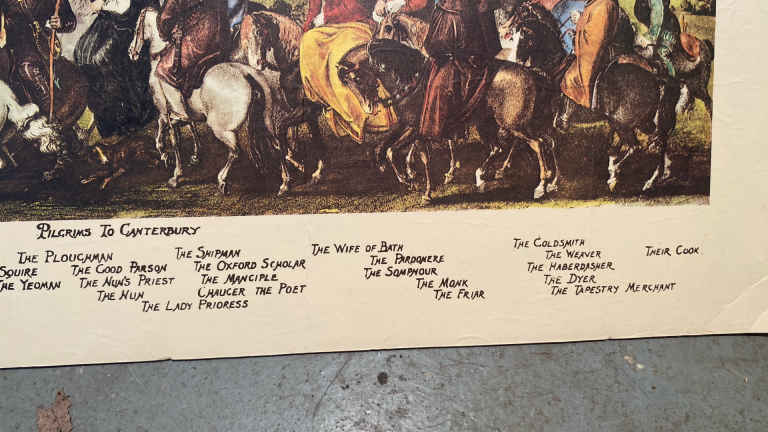 Pilgrims To Canterbury
The Ploughman
Squire The Good Parson
The Yeoman The Nun's Priest
The Nun
The Lady Prioress
The Shipman
The Oxford Scholar
The Manciple
Chaucer the Poet
The Wife of Bath
The Pardonere
The Sompnour
The Monk
The Friar
The Goldsmith
The Weaver
The Haberdasher
The Dyer
The Tapestry Merchant
Their Cook.